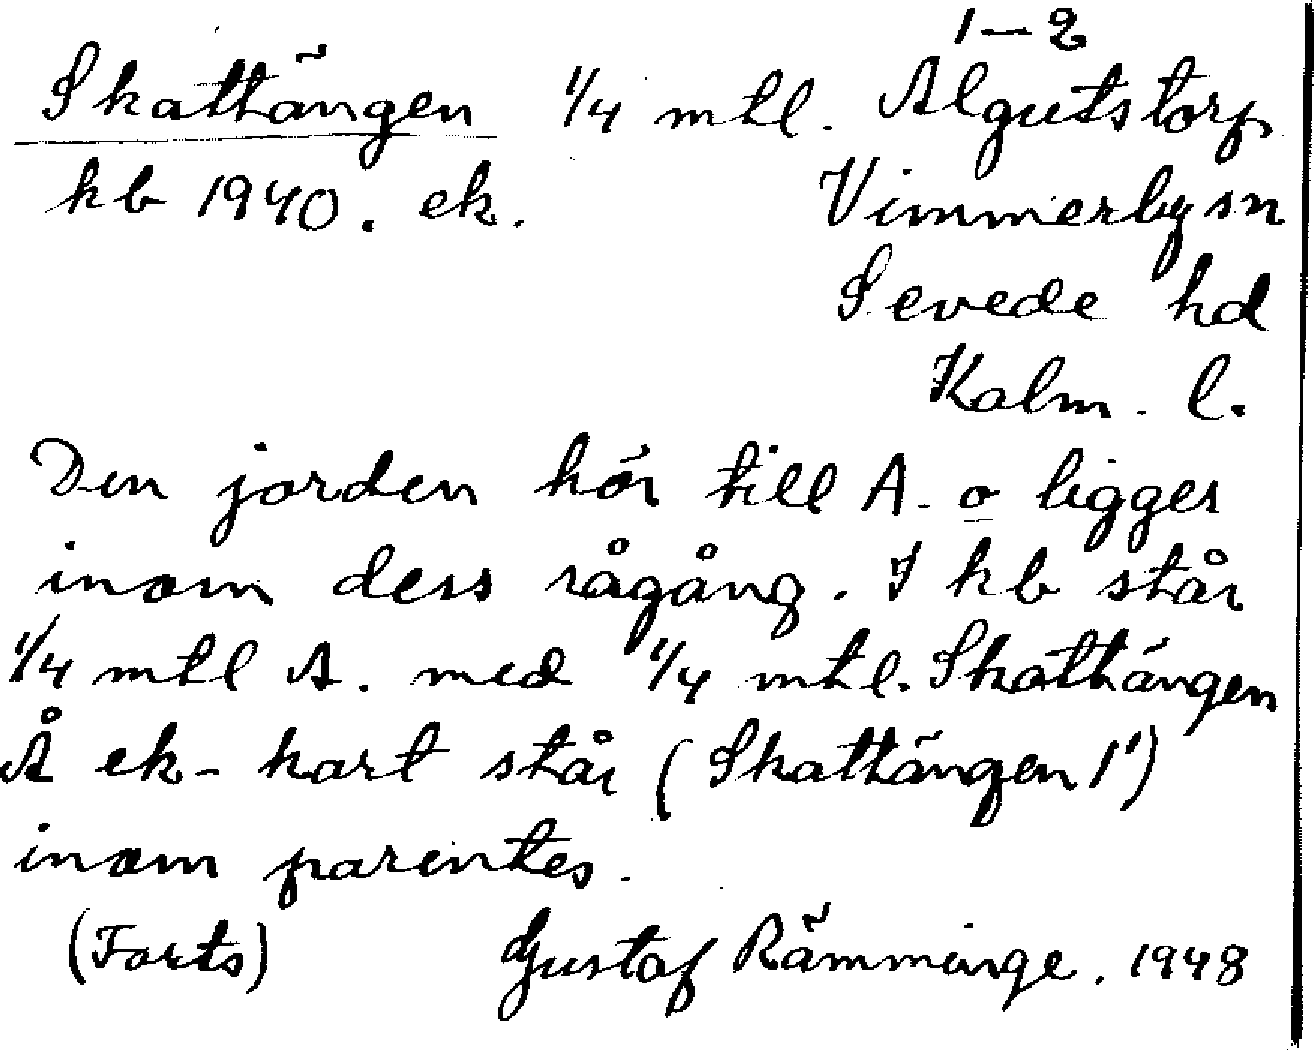 1–2
Skattängen 1/4 mtl. Algutstorp
kb 1940. ek. Vimmerby sn
Sevede hd
Kalm. l.
Den jorden hör till A. o ligger
inom dess rågång. I kb står
1/4 mtl A. med 1/4 mtl. Skattängen
Å ek-kart står (Skattängen 1')
inom parentes.
(Forts) Gustaf Rämminge. 1948